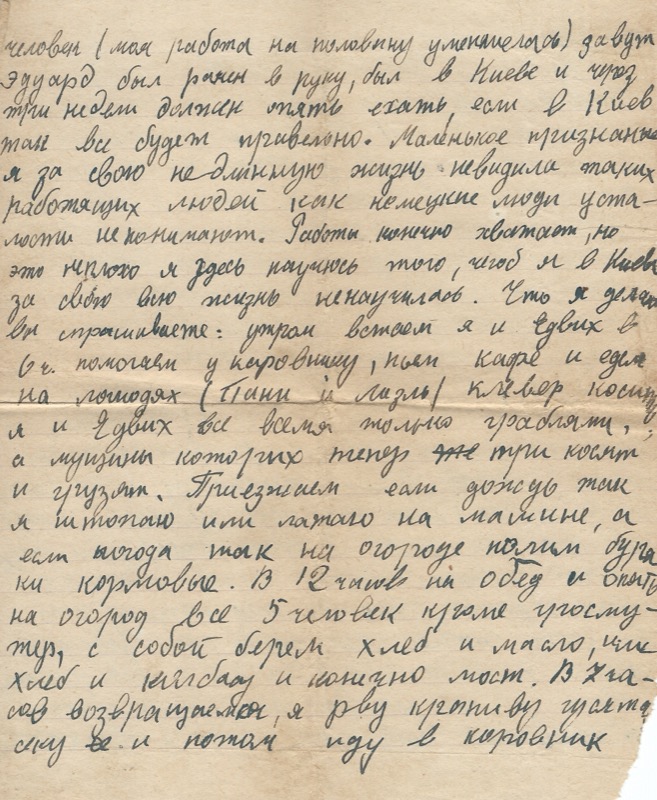 человек (моя работа на половину уменшелась) завут
Эдуард был ранен в руку, был в Киеве и через
три недели должен опять ехать, если в Киев
так все будет правельно. Маленькое признание
я за свою не длинную жизнь невидила таких
работящих людей как немецкие люди уста-
лости непонимают. Работы конечно хватает, но
это неплохо я здесь научюсь того, чегоб я в Киеве
за свою всю жизнь ненаучилась. Что я делаю
вы спрашиваете: утром встаем я и Едвих в
6 ч. помогаем у каровнику, пьем кафе и едем
на лошодях (Пани и Лазль) клевер косить
я и Едвих все время только граблями,
а мущины которих тепер три косят
и грузят. Приезжаем если дождь так
я штопаю или латаю на машине, а
если погода так на огороде полим буря
ки кормовые. В 12 часов на обед и опять
на огород все 5 человек кроме гросму-
тер, с собой берем хлеб и масло, или
хлеб и калбасу и конечно мост. В 7 ча-
сов возвращаемся, я рву крапиву гусята
секу и потом иду в коровник